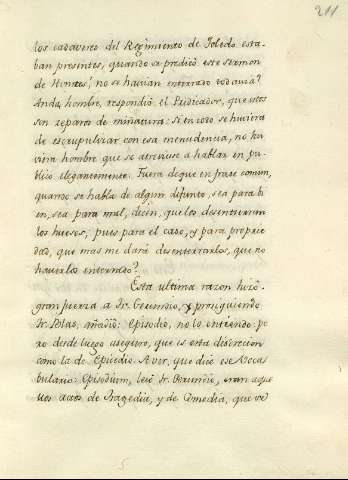 211
los cadaveres del Regimiento de Toledo esta-
ban presentes, quando se predicó este sermon
de Honras? no se havian enterrado todavia?
Anda, hombre, respondió el Predicador, que essos
son reparos de miñatura: si en todo se huviera
de escrupulizar con esa menudencia, no hu-
viera hombre que se atreviese a hablar en pu-
blico elegantemente. Fuera de que en frase comun,
quando se habla de algun difunto, sea para bi
en, sea para mal, dicen, que los desentierran
los huesos; pues para el caso, y para proprie
dad, que mas me dará desenterrarlos, que no
haverlos enterrado?
Esta ultima razon hizo
gran fuerza a Fr. Gerundio, y prosiguiendo
Fr. Blas, añadió: Episodio, no lo entiendo: pe
ro desde luego aseguro, que es esta discrecion
como la de Epicedio. A ver, que dice ese Voca
bulario: Episodium, leió Fr. Gerundio, eran aque
llos actos de Tragedia, y de Comedia, que ve